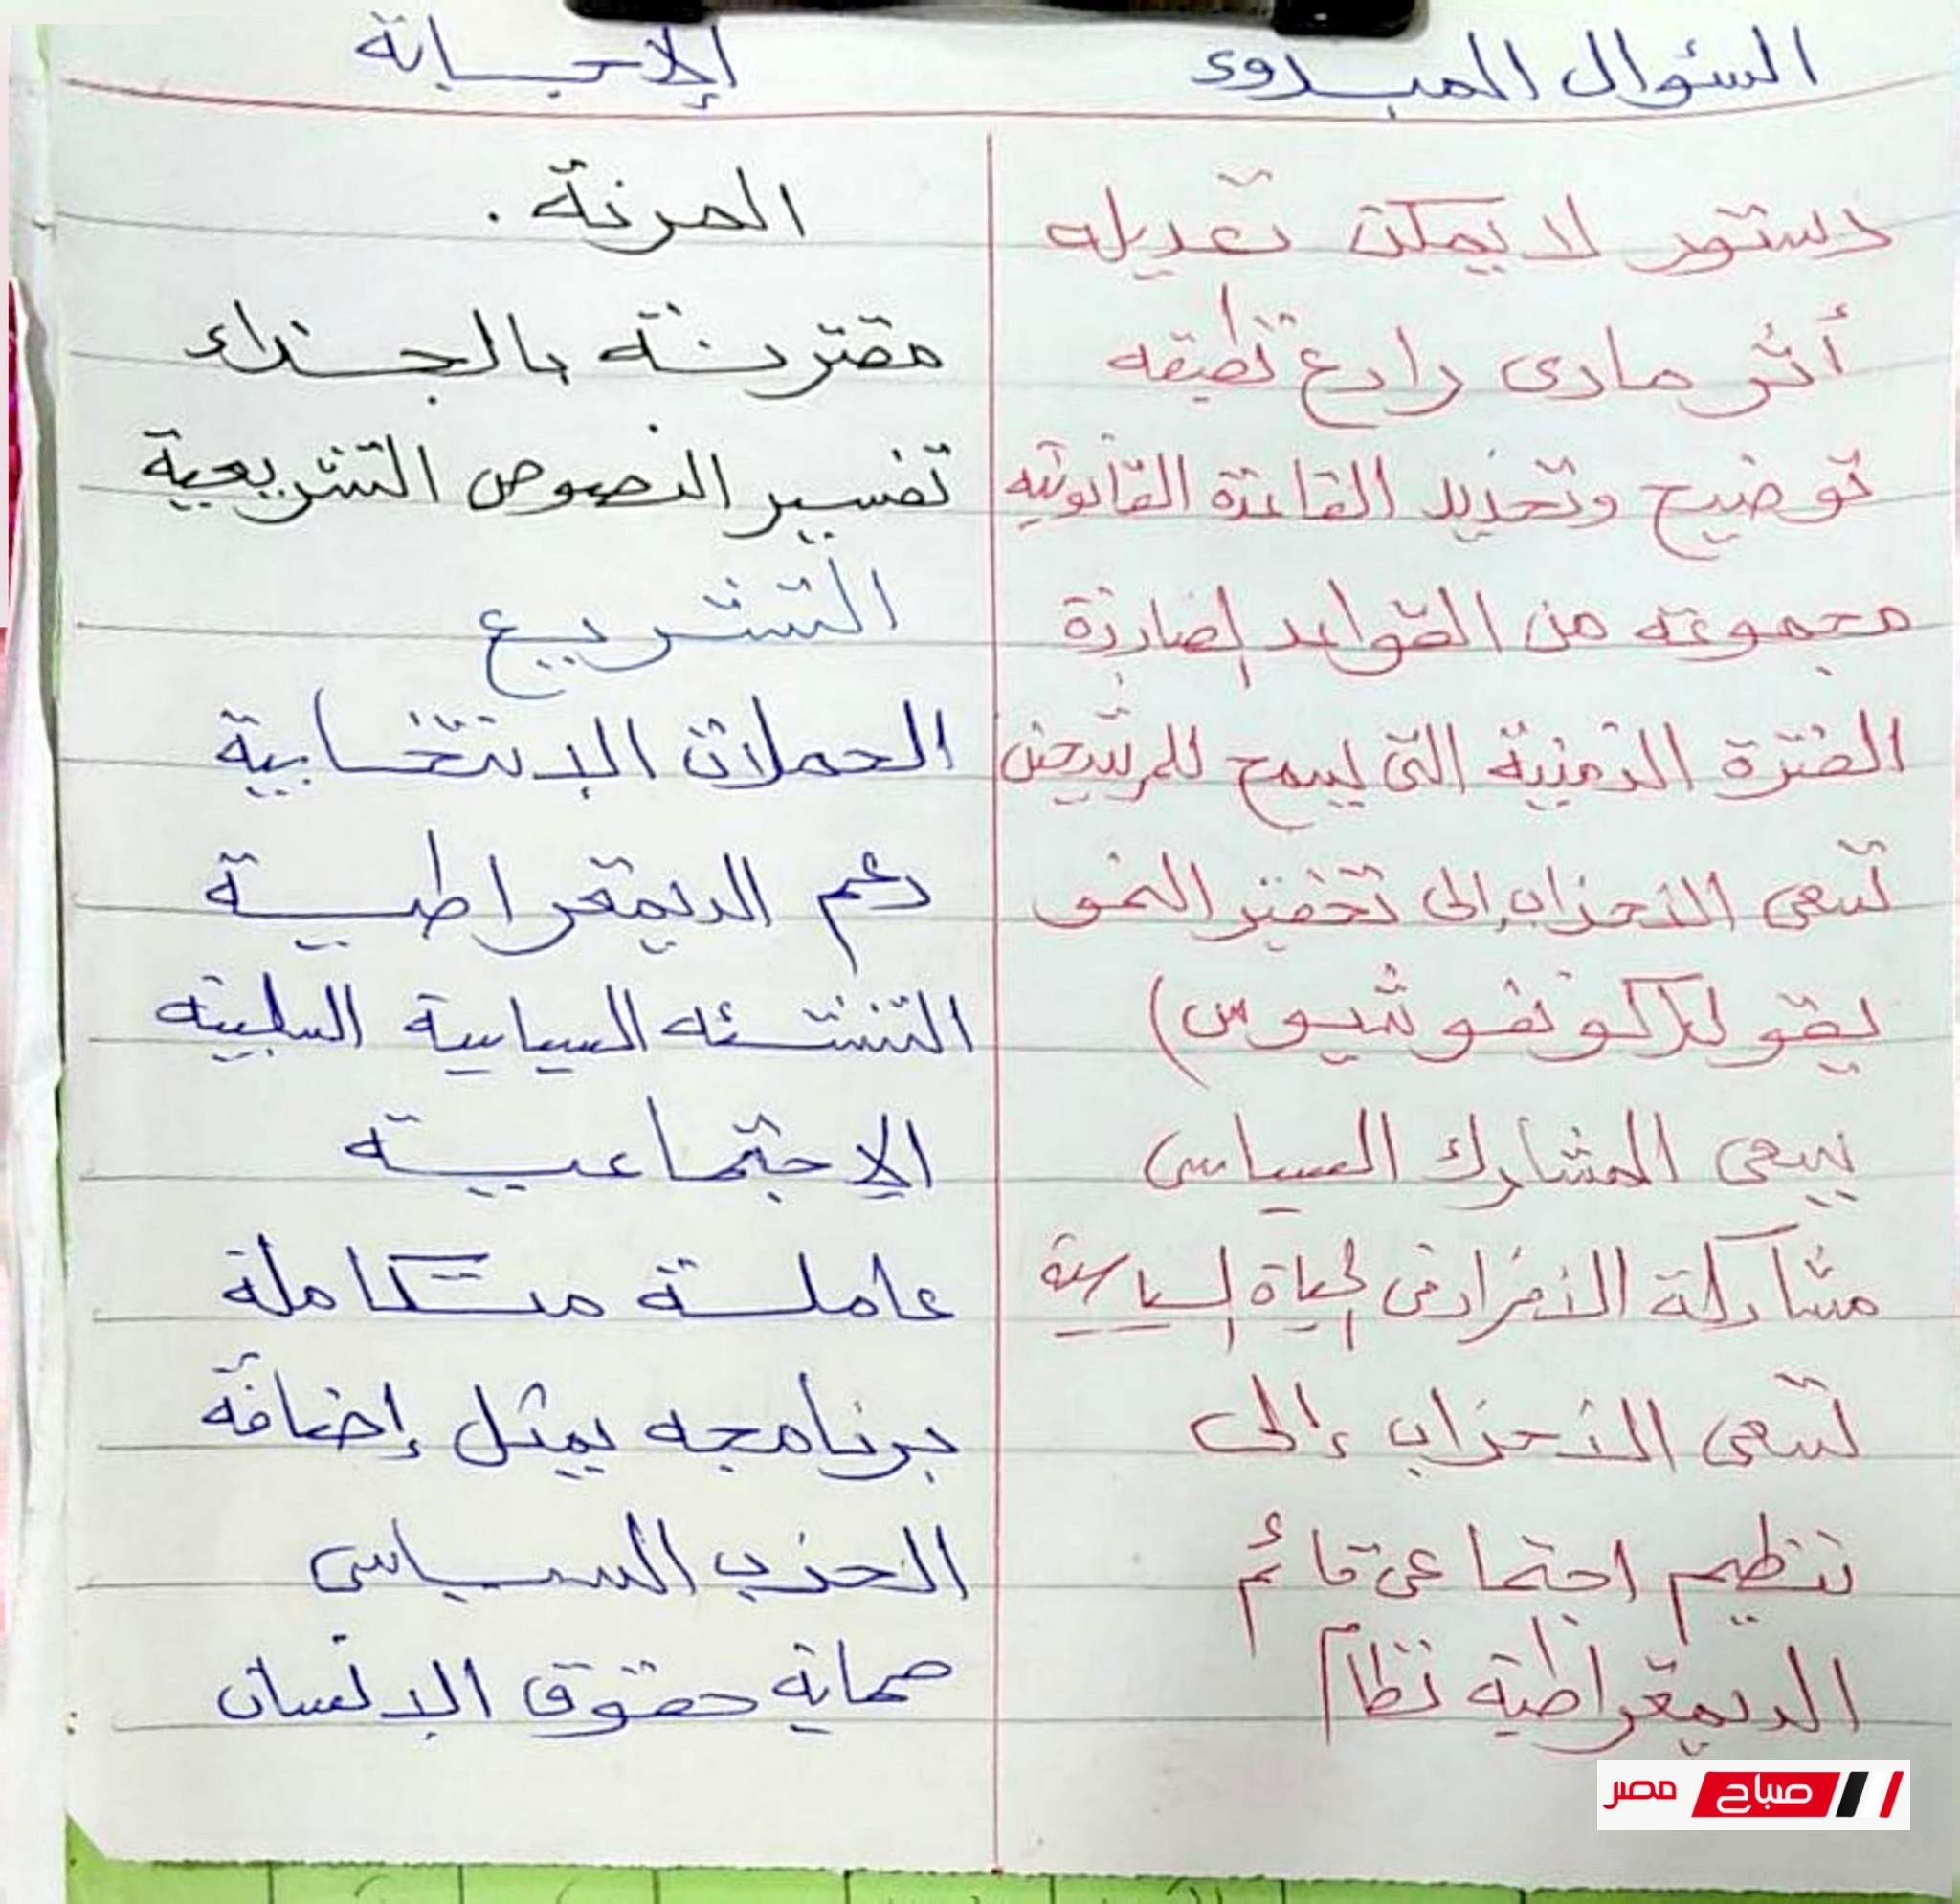 السئوال المبدوء الإجابة
دستور لا يمكن تعديله المرنة .
أثر مادى رادع تطبقه مقترنة بالجزاء
توضيح وتحديد القاعدة القانونيه تفسير النصوص التشريعية
مجموعة من القواعد الصادرة التشريع
الفترة الزمنية التى يسمح للمرشحين الحملات الإنتخابية
تسعى الأحزاب إلى تحفيز النمو دعم الديمقراطية
يقول كونفوشيوس) التنشئه السياسية السلبيه
يسعى المشارك السياسى الإجتماعية
مشاركة الأفراد فى الحياة السياسية عاملة متكاملة
تسعى الأحزاب إلى برنامجه يمثل إضافة
تنظيم اجتماعى قائم الحزب السياسى
الديمقراطية نظام حماية حقوق الإنسان
صباح مصر